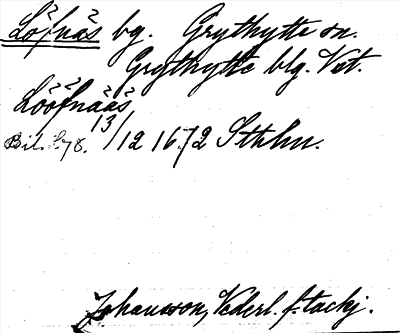 Löfnäs bg. Grythytte sn.
Grythytte blg. Vst.
Löofnääs
Bil. S. 78. 13/12 1672 Sthlm.
Johansson, Vederl. f. tackj.